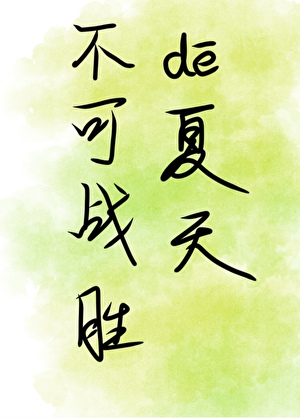 不可战胜
dē夏天